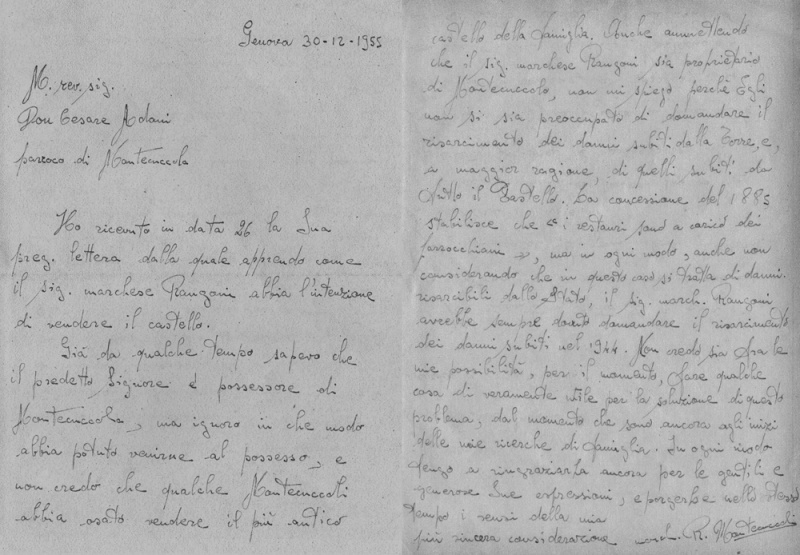 Genova 30-12-1955
M. rev. sig.
Don Cesare Adani
parroco di Montecuccolo
Ho ricevuto in data 26 la Sua
preg. lettera dalla quale apprendo come
il sig. marchese Rangoni abbia l'intenzione
di vendere il castello.
Già da qualche tempo sapevo che
il predetto Signore è possessore di
Montecuccolo, ma ignoro in che modo
abbia potuto venirne al possesso, e
non credo che qualche Montecuccoli
abbia osato vendere il più antico
castello della famiglia. Anche ammettendo
che il sig. marchese Rangoni sia proprietario
di Montecuccolo, non mi spiego perchè Egli
non si sia preoccupato di domandare il
risarcimento dei danni subiti dalla Torre, e,
a maggior ragione, di quelli subiti da
tutto il Castello. La concessione del 1885
stabilisce che « i restauri sono a carico dei
parrocchiani », ma in ogni modo, anche non
considerando che in questo caso si tratta di danni
risarcibili dallo Stato, il sig. march. Rangoni
avrebbe sempre dovuto domandare il risarcimento
dei danni subiti nel 1944. Non credo sia fra le
mie possibilità, per il momento, fare qualche
cosa di veramente utile per la soluzione di questo
problema, dal momento che sono ancora agli inizi
delle mie ricerche di famiglia. In ogni modo
tengo a ringraziarLa ancora per le gentili e
generose Sue espressioni, e porgerLe nello stesso
tempo i sensi della mia
più sincera considerazione R. Montecuccoli